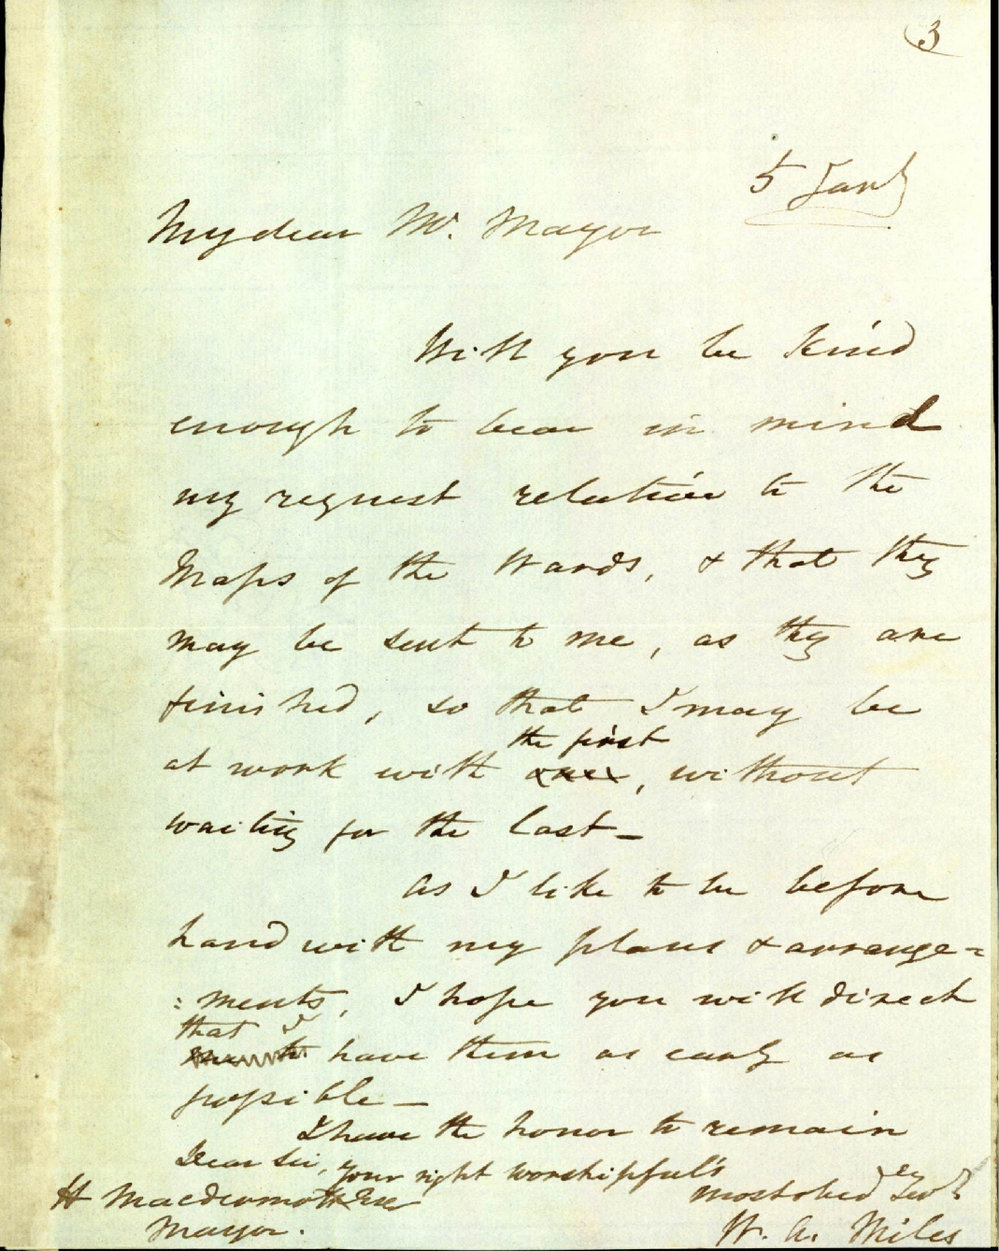 3
5 Jany
My dear Mr. Mayor
Will you be kind
enough to bear in mind
my request relative to the
Maps of the Wards, & that they
may be sent to me, as they are
finished, so that I may be
the first
at work with , without
waiting for the last –
As I like to be before
hand with my plans & arrange=
:ments, I hope you will direct
that I
have them as early as
possible –
I have the honor to remain
Dear Sir, your right worshipful's
most obedt Servt
H Macdermott Esqr
Mayor.
W. A. Miles